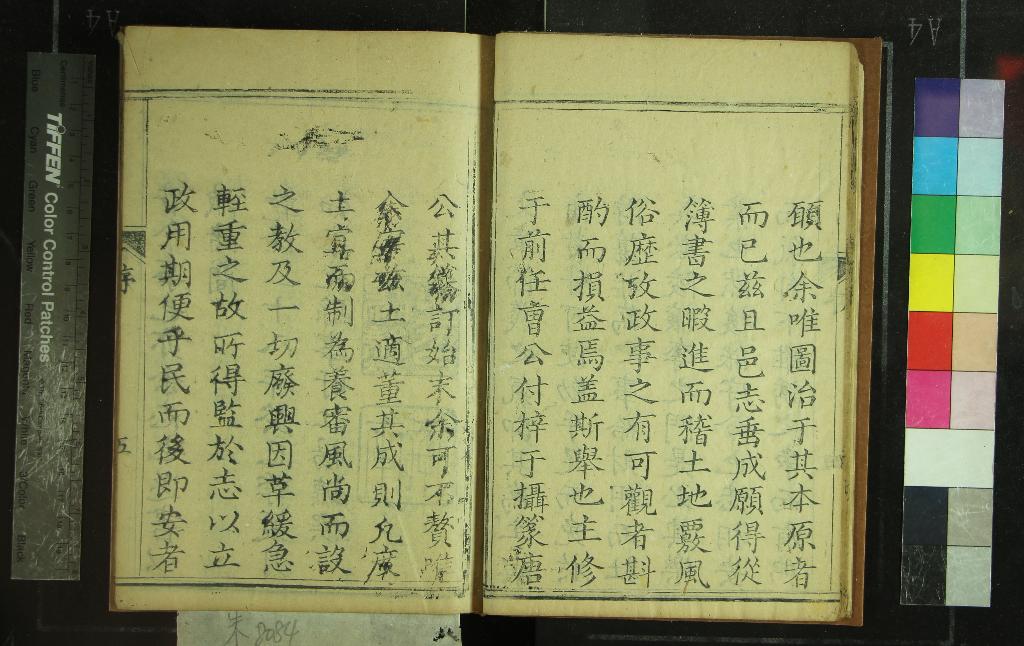 頋也余唯圖治于其本原者
而已茲且邑志垂成願得從
簿書之暇進而稽土地覈風
俗歷攷政事之有可觀者斟
酌而損益焉盖斯舉也主修
于前任曹公付梓于攝篆唐
公其讎訂始末余可不贅惟
余蒞土適董其成則允廣
土宜而制為養審風尚而設
之教及一切廢興因革緩急
輕重之故所得監於志以立
政用期便乎民而後即安者
序
五
TIFFEN Color Control Patches
Blue
Cyan
Green
Yellow
Red
Magenta
Black
Centimetres
A4
A4
朱 8084